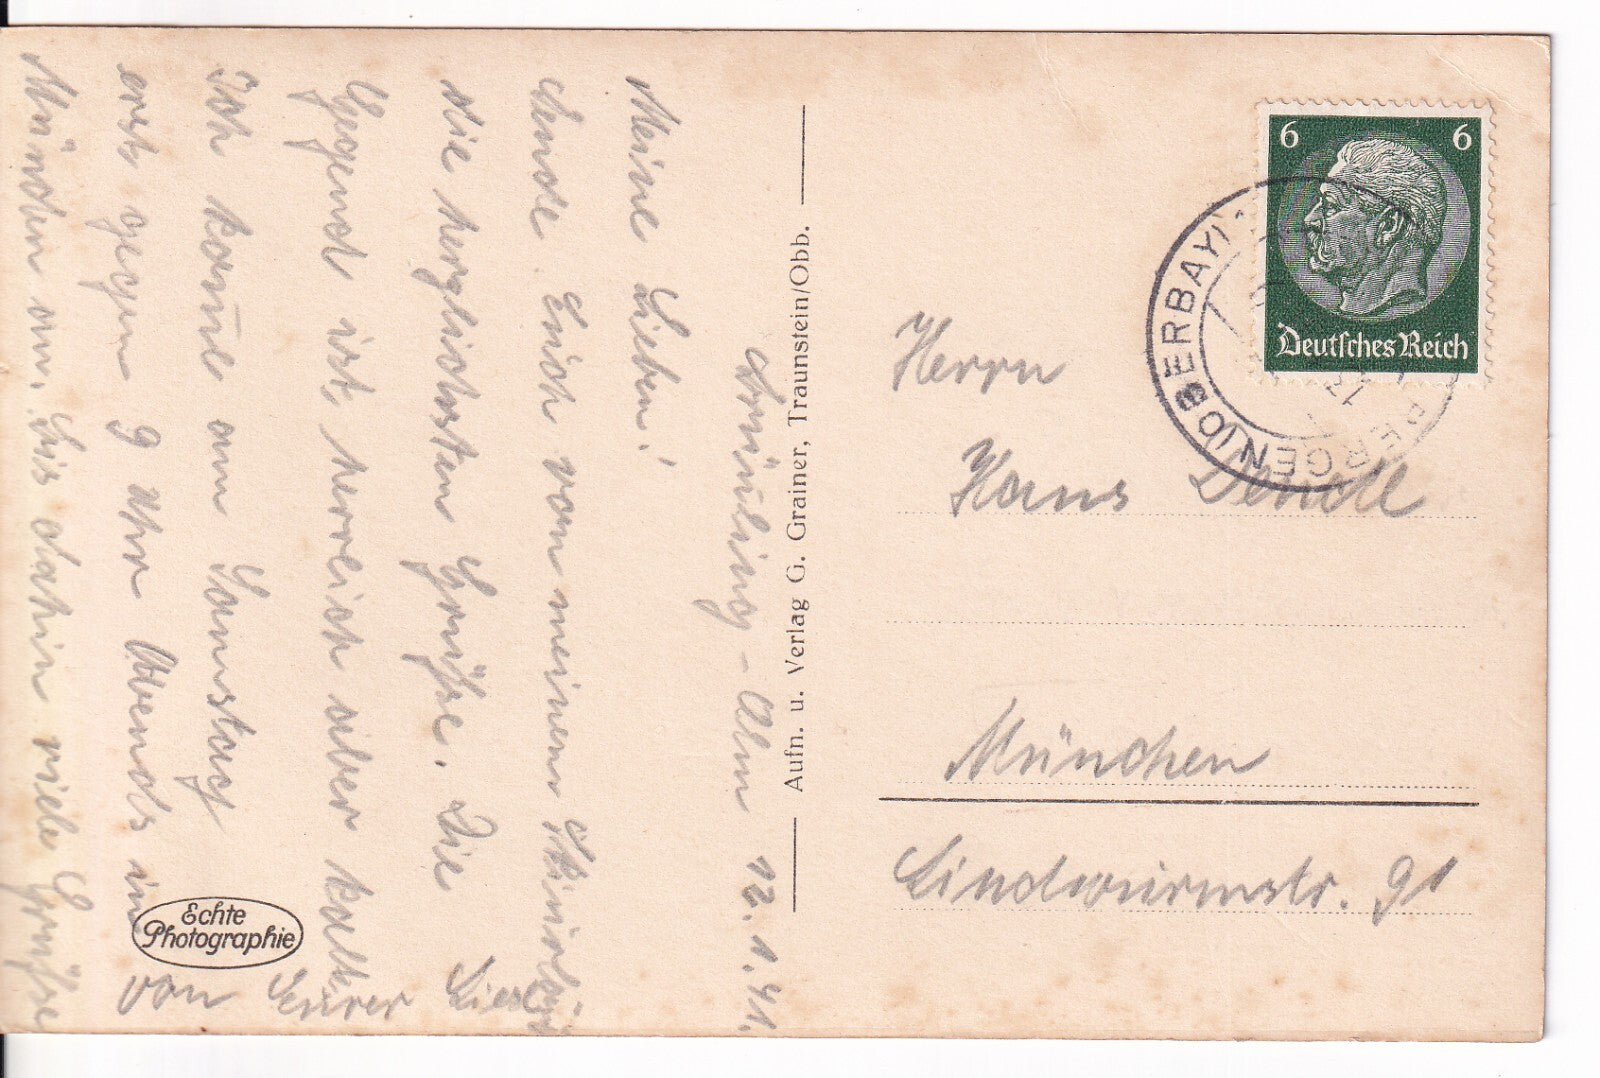 Bründling-Alm 12.1.41.
Meine Lieben!
Sende Euch von meinem
die herzlichsten Grüße. Die
Gegend ist herrlich aber kalt.
Ich komme am Samstag
erst gegen 9 Uhr Abends in
München an. Bis dahin viele Grüße
von Eurer Liesl
Echte
Photographie
Aufn. u. Verlag G. Grainer, Traunstein/Obb.
6 6
Deutsches Reich
BERGEN (OBERBAY)
Herrn
Hans Dendl
München
Lindwurmstr. 91